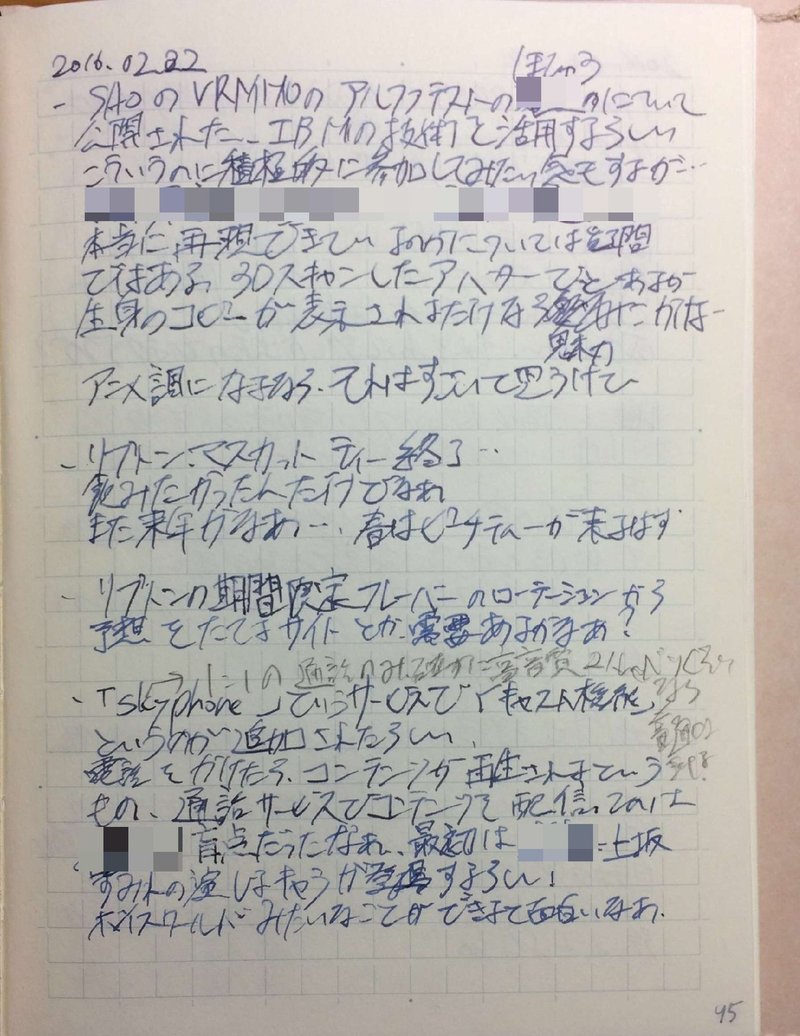 2016.02.22
- SAOのVRMMOのアルファテストの
公開された、IBMの技術を活用するらしい
こういうのに積極的に参加してみたい気もするが…
本当に再現できているのかについては疑問
ではある。3Dスキャンしたアバターで
生身のコピーが表示されるだけなら
魅力
アニメ調になるなら、それはすごいって思うけど
- リプトン、マスカットティー終了…
飲みたかったんだけどなあ
また来年かなあ…、春はピーチティーが来るはず
- リプトンの期間限定フレーバーのローテーションから
予想をたてるサイトとか、需要あるかなあ?
→1:1の通話のみ 確かに高音質
- 「skyphone」っていうサービスで「キャスト機能」
というのが追加されたらしい、
電話をかけたら、コンテンツが再生されるという
もの、通話サービスでコンテンツを配信ってのは
盲点だったなあ、最初は
=上坂
すみれの演じるキャラが登場するらしい!
ボイスワールドみたいなことができるって面白いなあ、
45